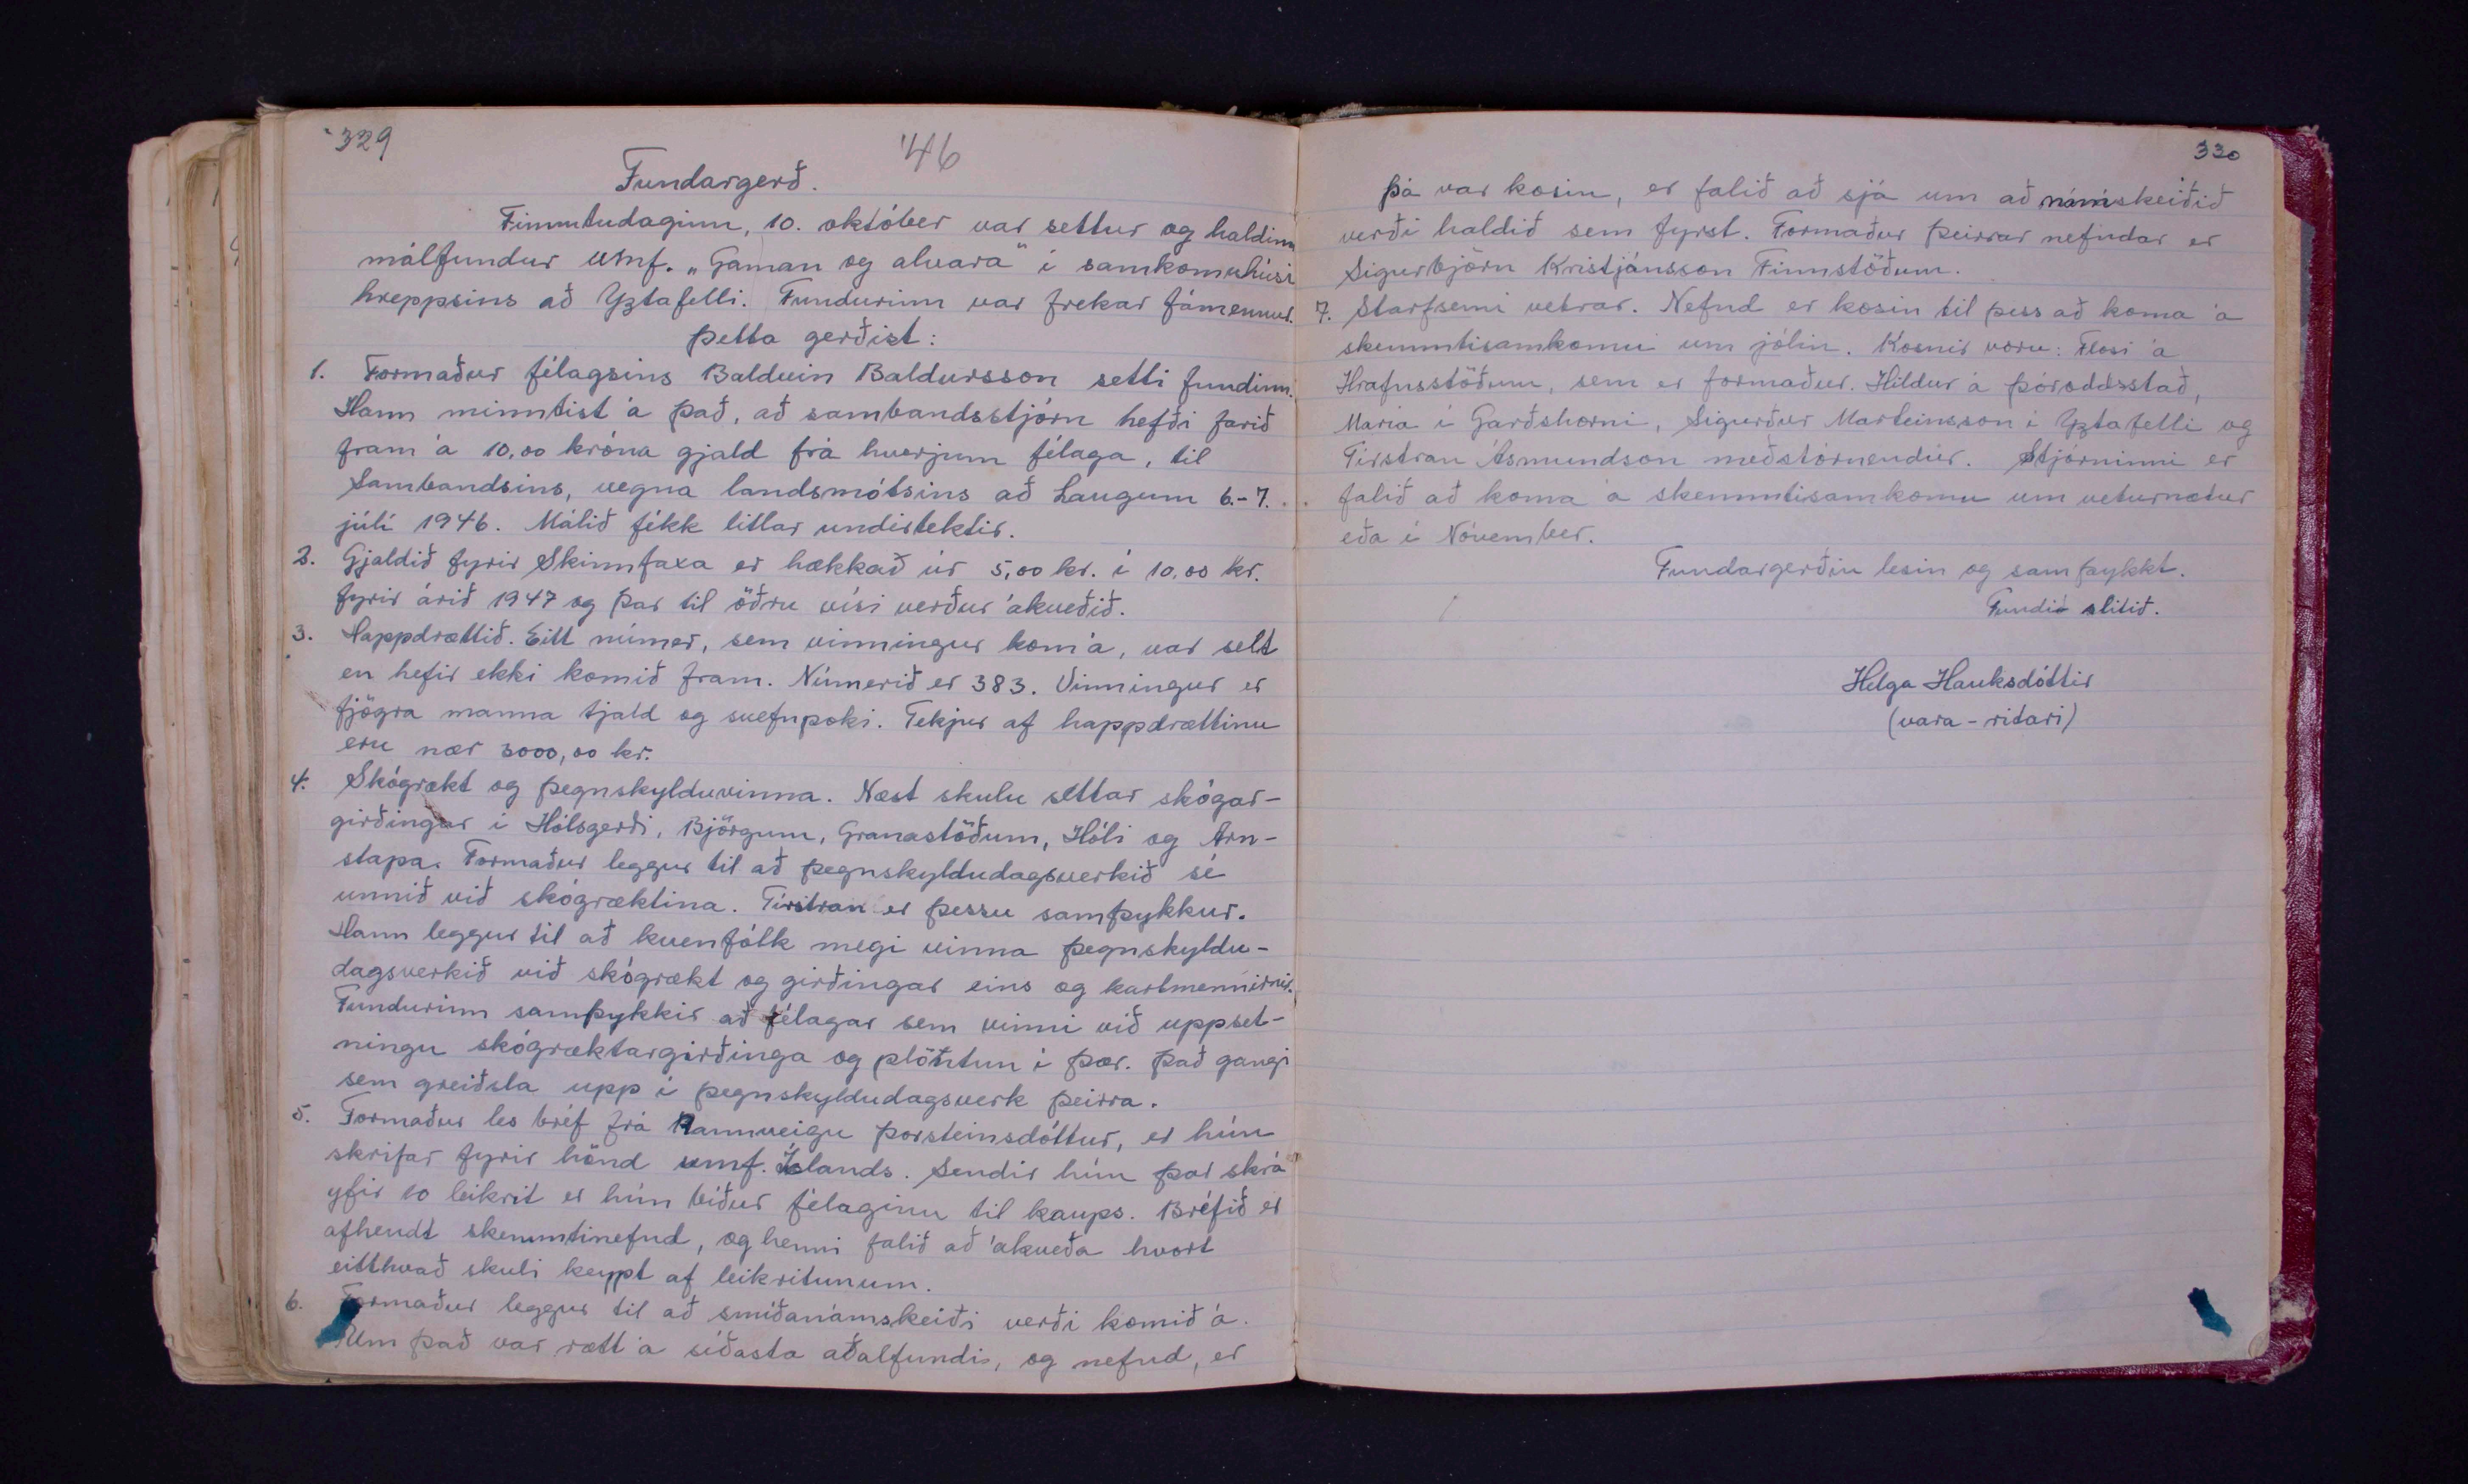 329
'46
Fundargerð.
Fimmtudaginn, 10. október var settur og haldinn
málfundur Umf. „Gaman og alvara" í samkomuhúsi
hreppsins að Yztafelli. Fundurinn var frekar fámennur.
Þetta gerðist:
1. Formaður félagsins Balduin Baldursson setti fundinn.
Hann minntist á það, að sambandsstjórn hefði farið
fram á 10,00 króna gjald frá hverjum félaga, til
Sambandsins, vegna landsmótsins að Laugum 6.-7.
júlí 1946. Málið fékk litlar undirtektir.
2. Gjaldið fyrir Skinnfaxa er hækkað úr 5,00 kr. í 10,00 kr.
fyrir árið 1947 og þar til öðru vísi verður ákveðið.
3. Happdrættið. Eitt númer, sem vinningur kom á, var selt
en hefir ekki komið fram. Númerið er 383. Vinningur er
fjögra manna tjald og svefnpoki. Tekjur af happdrættinu
eru nær 3000,00 kr.
4. Skógrækt og þegnskylduvinna. Næst skulu settar skógar-
girðingar í Hólsgerði, Björgum, Granastöðum, Hóli og Arn-
stapa. Formaður leggur til að þegnskyldudagsverkið sé
unnið við skógræktina. Tirstran er þessu samþykkur.
Hann leggur til að kvenfólk megi vinna þegnskyldu-
dagsverkið við skógrækt og girðingar eins og karlmennirnir.
Fundurinn samþykkir að félagar sem vinni við uppset-
ningu skógræktargirðinga og plöntun í þær. Það gangi
sem greiðsla upp í þegnskyldudagsverk þeirra.
5. Formaður les bréf frá Rannveigu Þorsteinsdóttur, er hún
skrifar fyrir hönd umf. Íslands. Sendir hún þar skrá
yfir 10 leikrit er hún biður félaginu til kaups. Bréfið er
afhendt skemmtinefnd, og henni falið að ákveða hvort
eitthvað skuli keypt af leikritunum.
6. Formaður leggur til að smíðanámskeiði verði komið á.
Um það var rætt á síðasta aðalfundi, og nefnd, er
330
þá var kosin, er falið að sjá um að námskeiðið
verði haldið sem fyrst. Formaður þeirrar nefndar er
Sigurbjörn Kristjánsson Finnstöðum.
7. Starfsemi vetrar. Nefnd er kosin til þess að koma á
skemmtisamkomu um jólin. Kosnir voru: Flosi á
Hrafnsstöðum, sem er formaður. Hildur á Þóroddsstað,
María í Garðshorni, Sigurður Marteinsson í Yztafelli og
Tirstran Ásmundson meðstórnendur. Stjórninni er
falið að koma á skemmtisamkomu um veturnætur
eða í Nóvember.
Fundargerðin lesin og samþykkt.
Fundi slitið.
Helga Hauksdóttir
(vara-ritari)